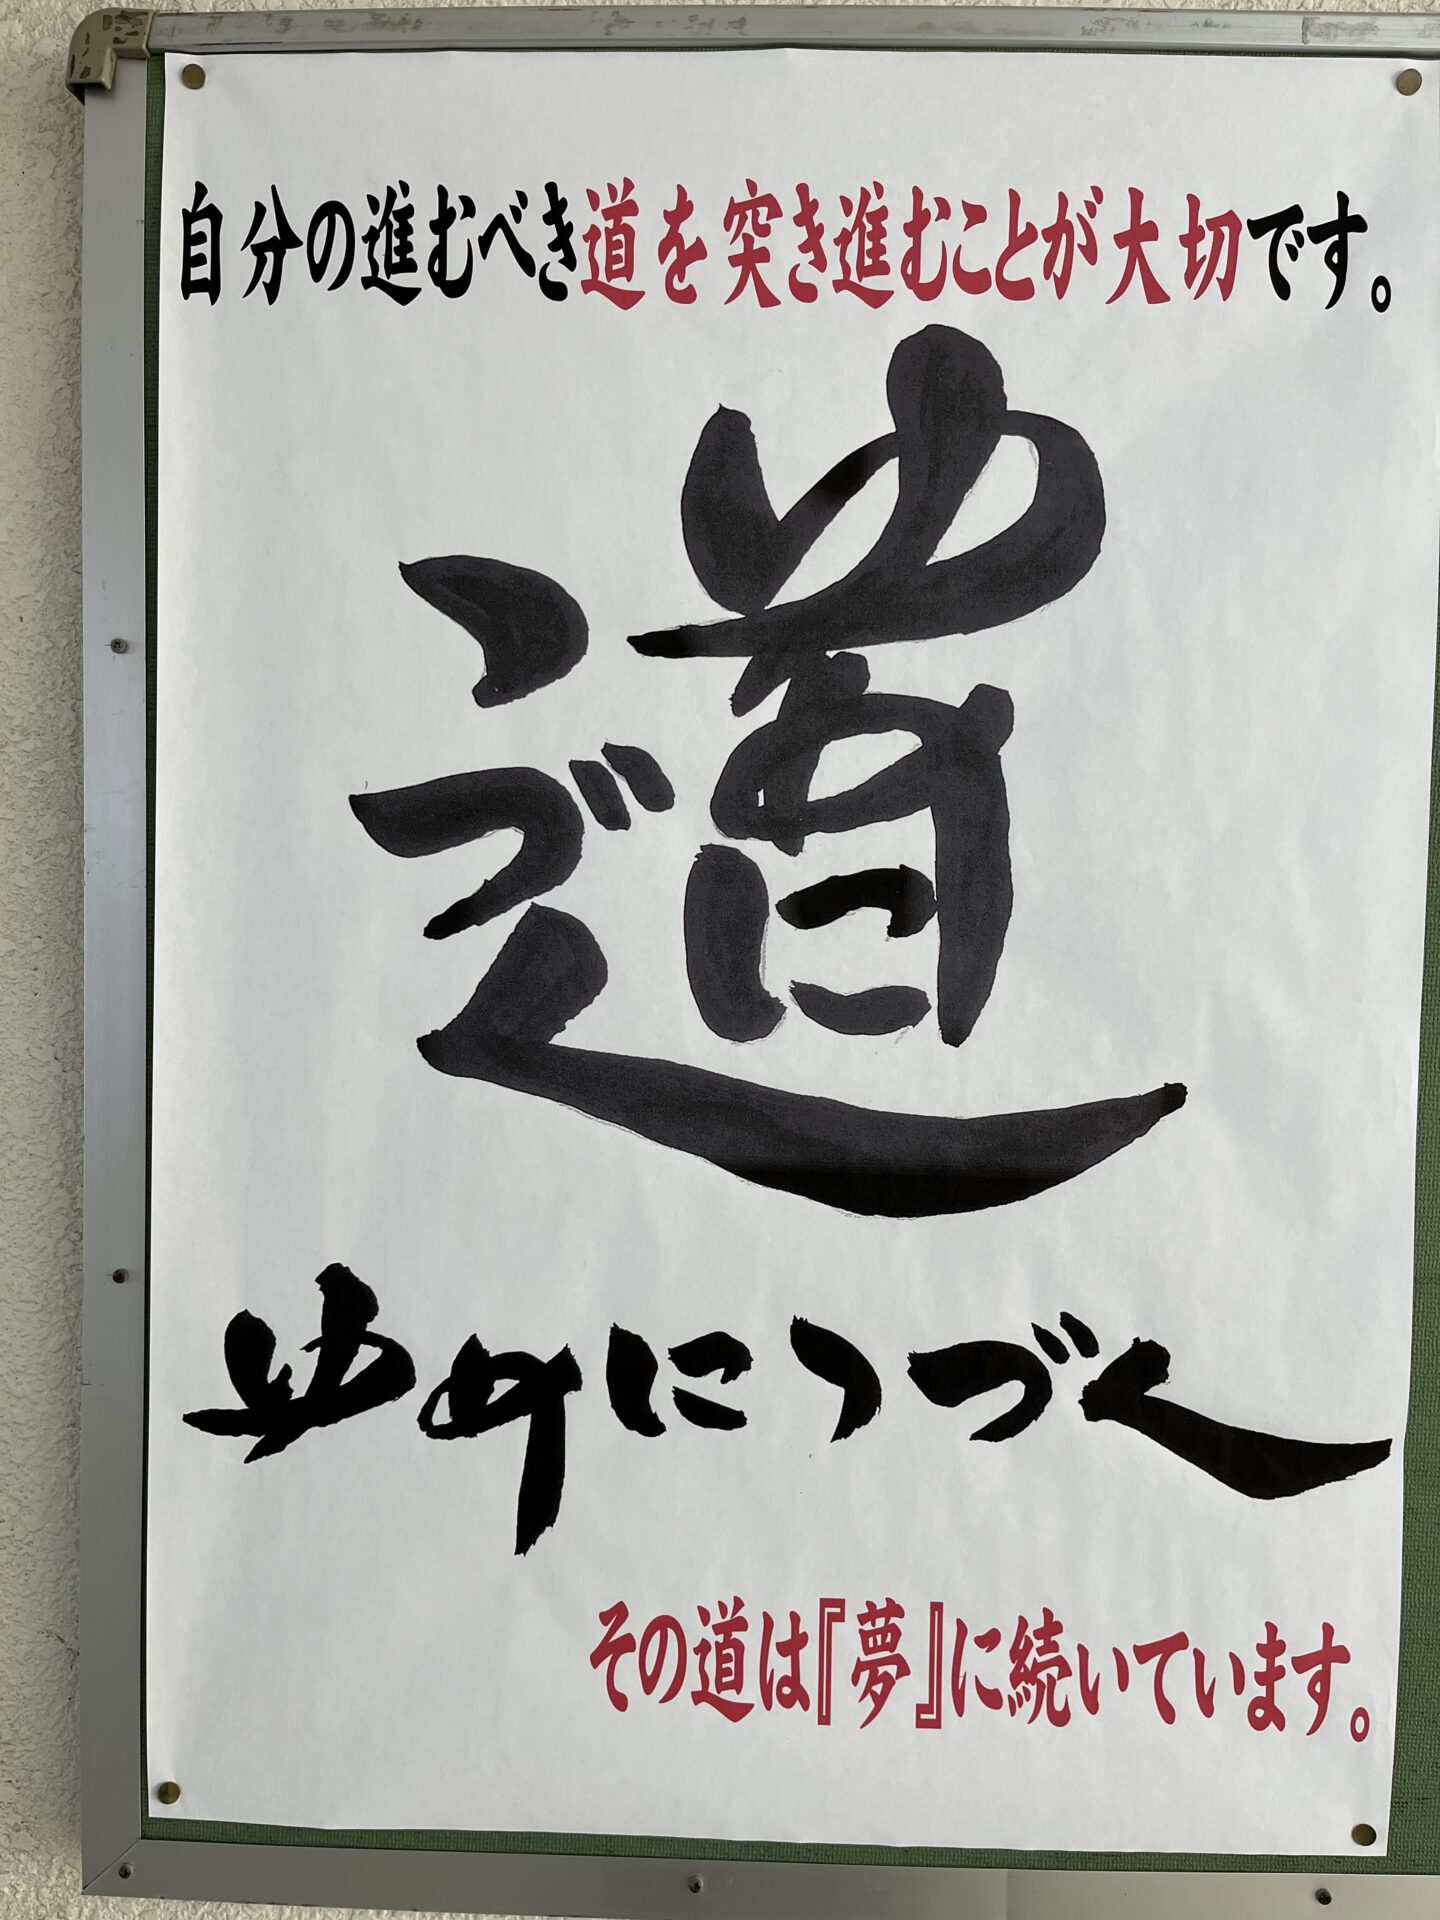 自分の進むべき道を突き進むことが大切です。
道
ゆめにつづく
その道は『夢』に続いています。